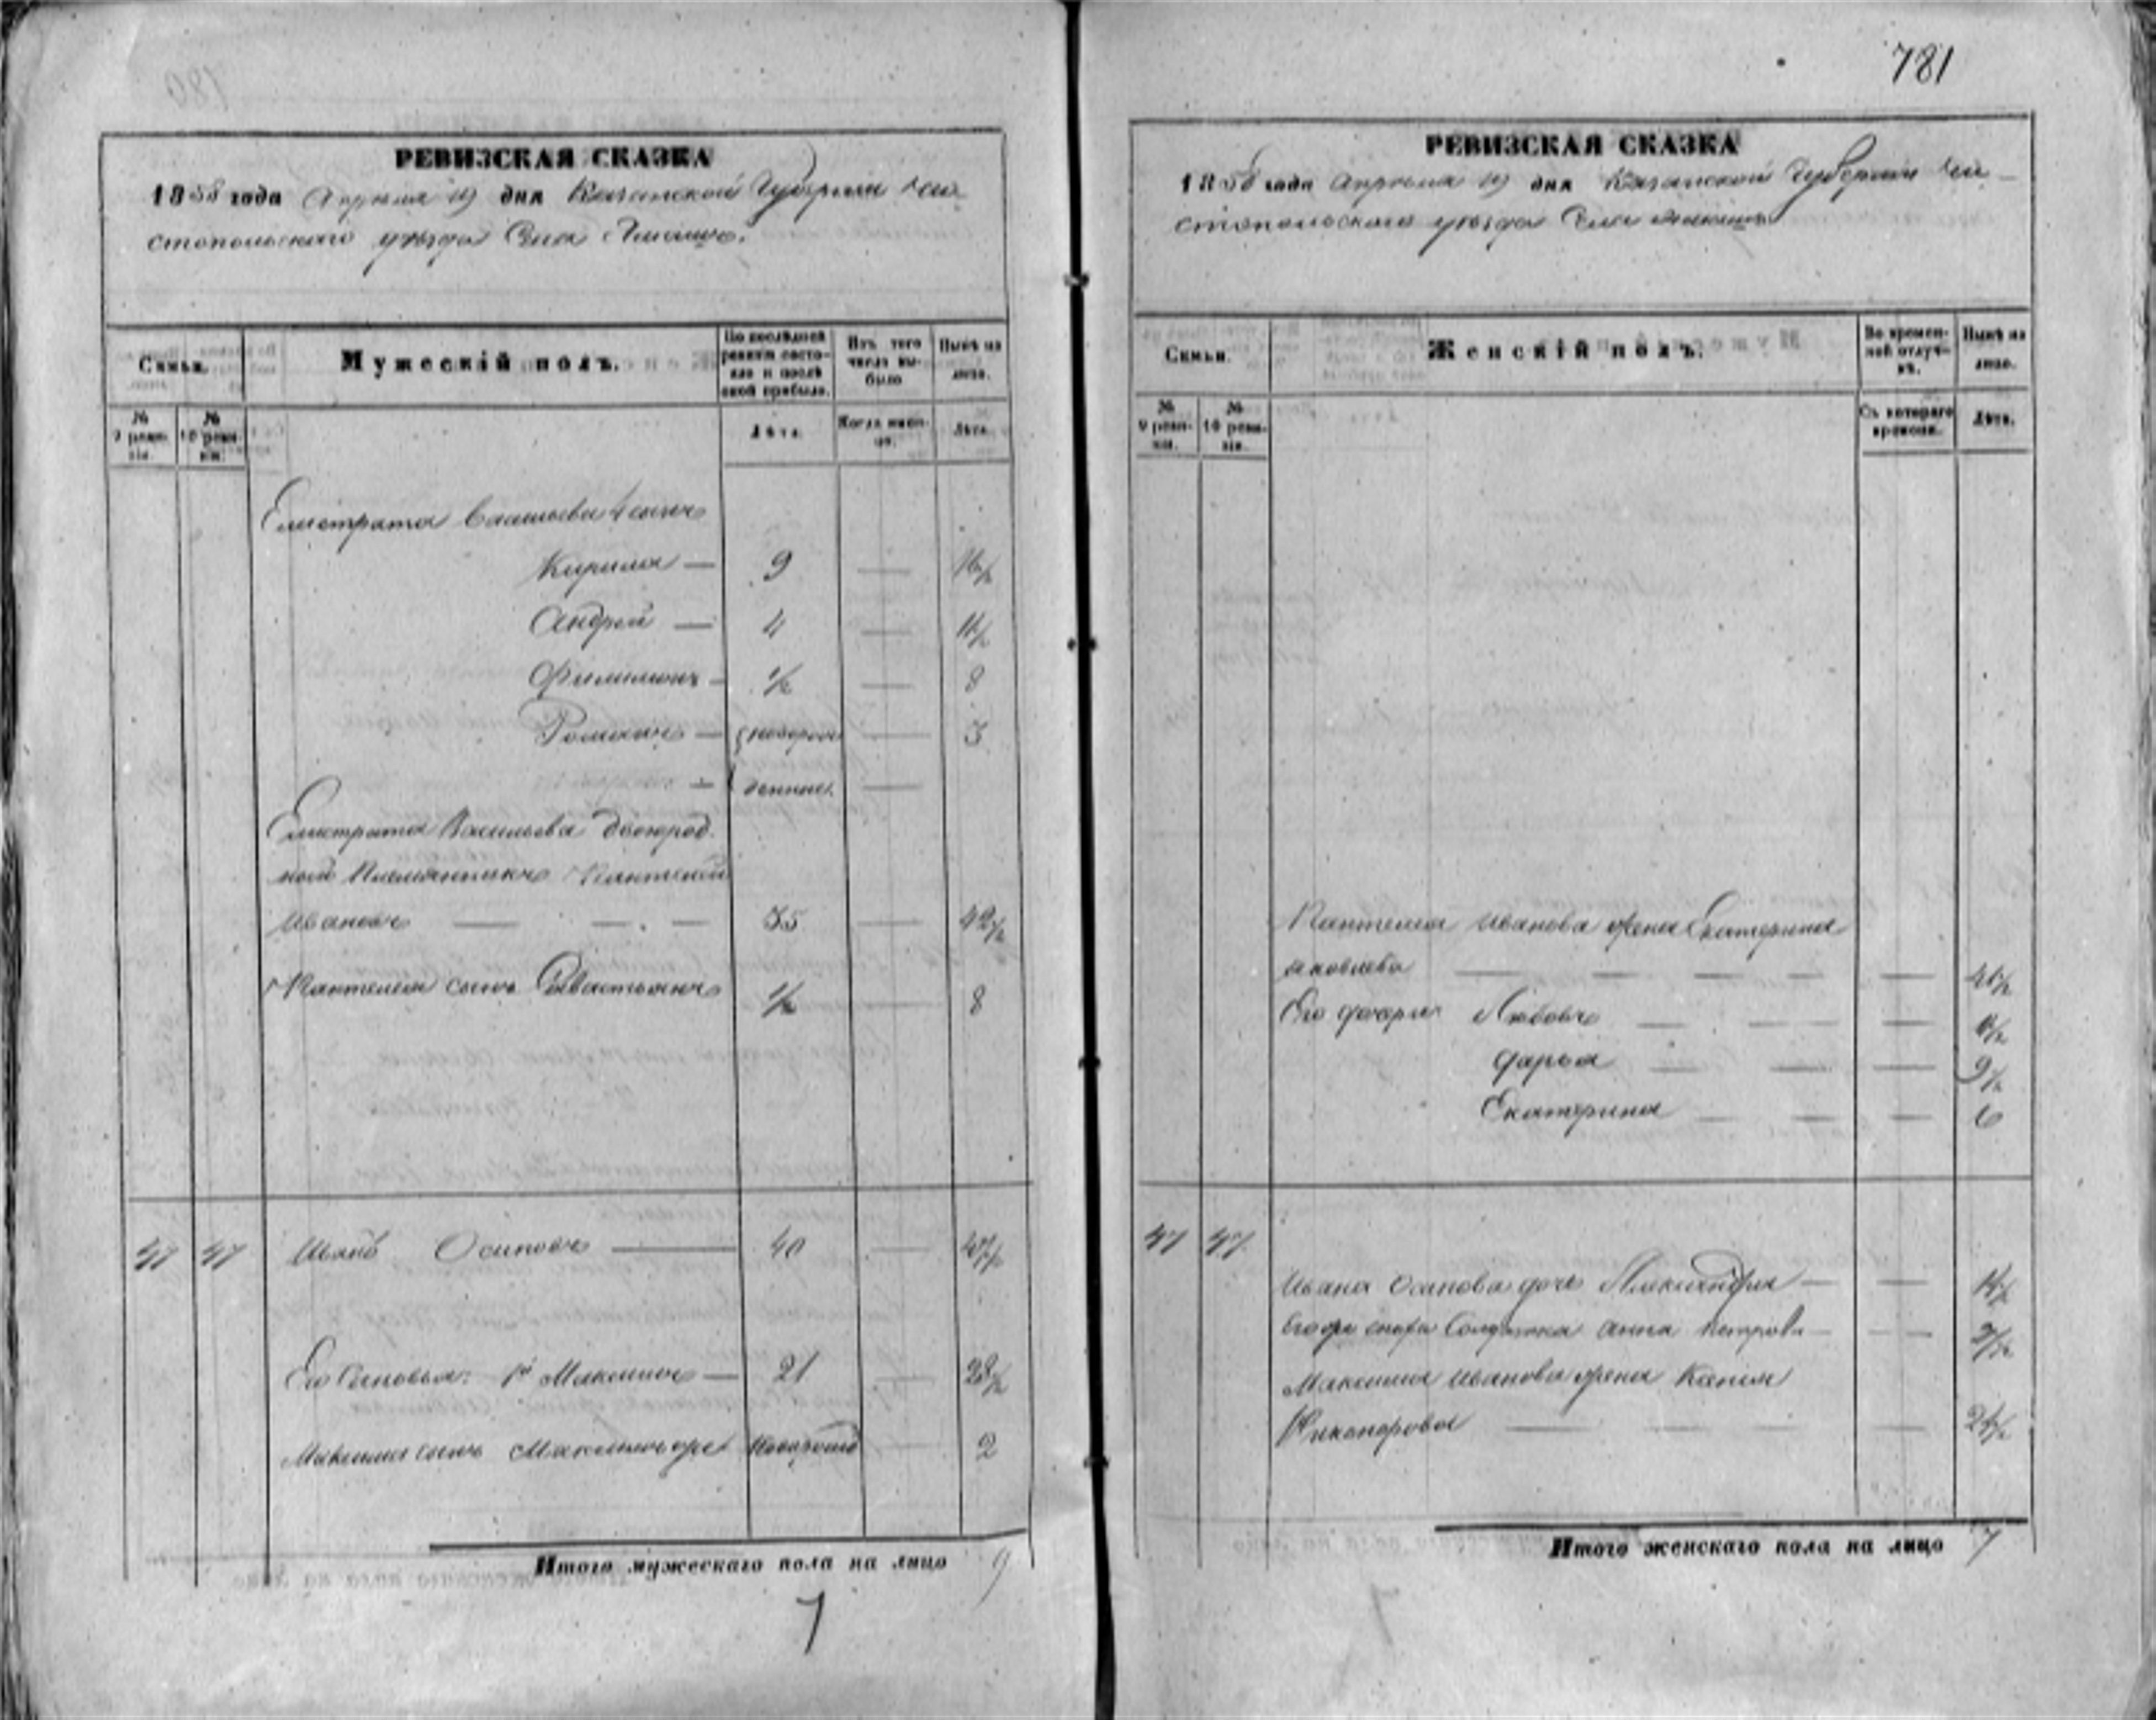 781
РЕВИЗСКАЯ СКАЗКА
1858 года Апреля 19 дня Казанской Губернии Чи-
стопольскаго уѣзда Села
Семьи.
Мужескій полъ.
По послѣдней ревизіи состояло и послѣ оной прибыло.
Изъ того числа выбыло
Нынѣ на лицо.
№ 9 ревизіи.
№ 10 ревизіи.
Лѣта.
Когда именно.
Лѣта.
Елистрата Васильева 4 сынъ
Кирила — 9 — 16½
Андрей — 4 — 11½
Филимонъ — ½ — 8
Романъ — новорож — 3
— денные —
Елистрата Васильева двоюрод
ной Племянникъ Пантелей
Ивановъ — — — 35 — 42½
Пантелея сынъ Севастьянъ ½ 8
47 47 Иванъ Осиповъ — 40 — 47½
Его Сыновья: 1й Максимъ — 21 — 28½
Максима сынъ Максимъ же новорожд — 2
Итого мужескаго пола на лицо 9
7
РЕВИЗСКАЯ СКАЗКА
1858 года Апреля 19 дня Казанской Губернии Чи-
стопольскаго уѣзда Села
Семьи.
Женскій полъ.
Во временной отлучкѣ.
Нынѣ на лицо.
№ 9 ревизіи.
№ 10 ревизіи.
Съ котораго времени.
Лѣта.
Пантелея Иванова жена Екатерина
Яковлева — — — — — 41½
Его дочери Любовь — — — — 11½
Дарья — — — — 9½
Екатерина — — — — 6
47 47
Ивана Осипова дочь Александра — — 14½
Солдатка Анна Петрова — —
Максима Иванова жена
Никонорова — — — — 24½
Итого женскаго пола на лицо 7